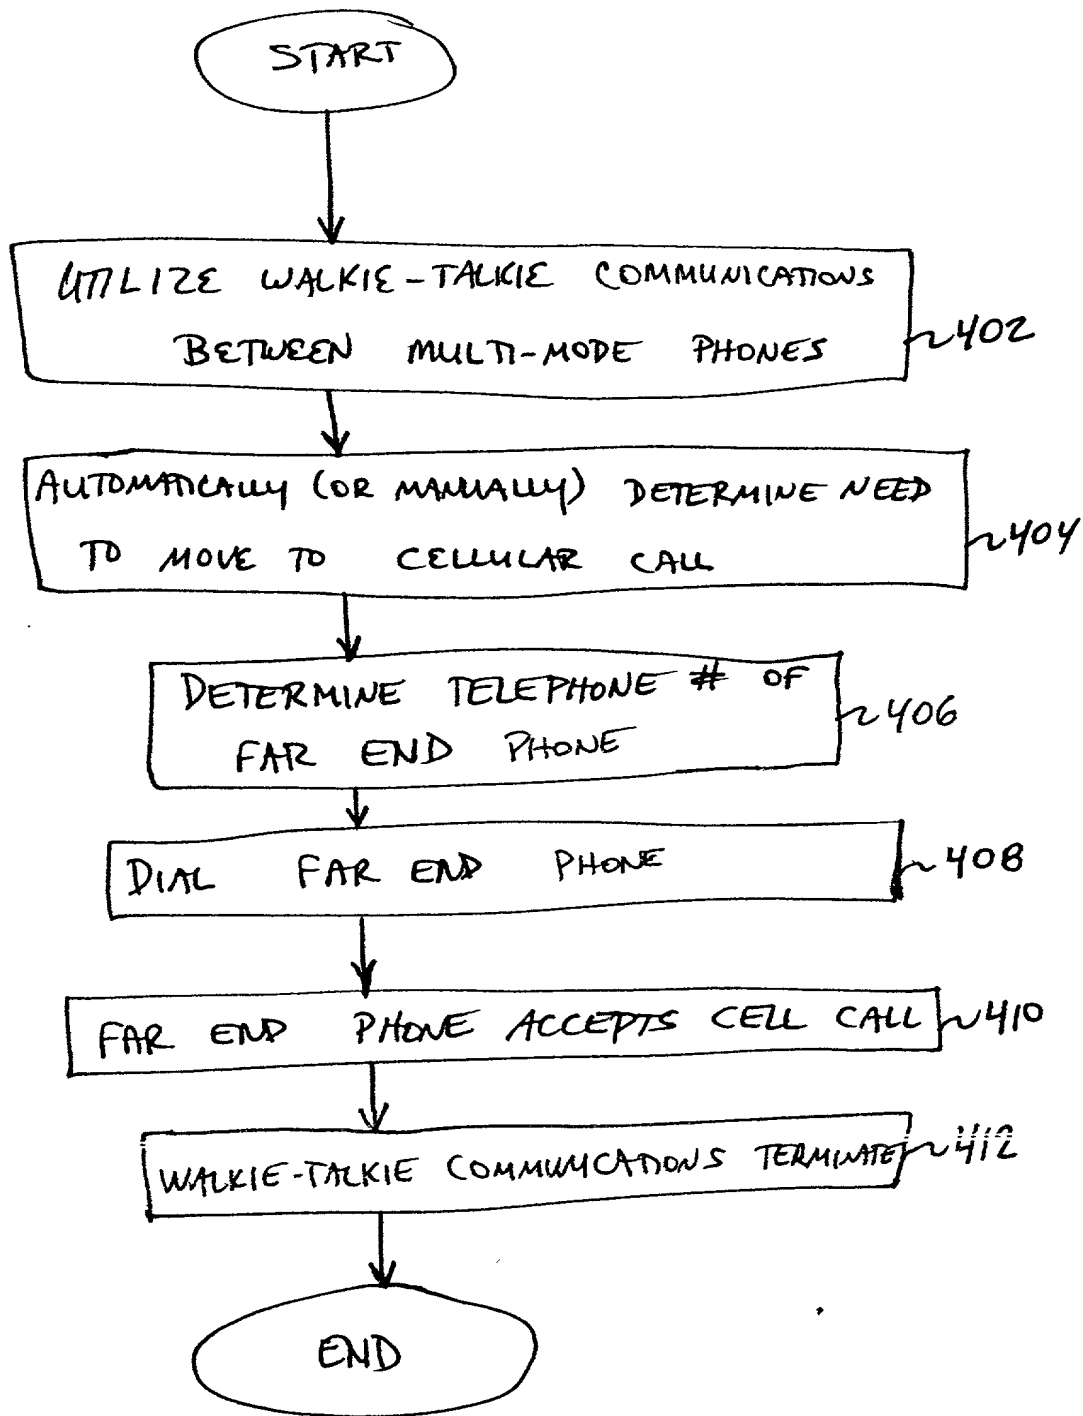 START
UTILIZE WALKIE-TALKIE COMMUNICATIONS
BETWEEN MULTI-MODE PHONES
402
AUTOMATICALLY (OR MANUALLY) DETERMINE NEED
TO MOVE TO CELLULAR CALL
404
DETERMINE TELEPHONE # OF
FAR END PHONE
406
DIAL FAR END PHONE
408
FAR END PHONE ACCEPTS CELL CALL
410
WALKIE-TALKIE COMMUNICATIONS TERMINATE
412
END